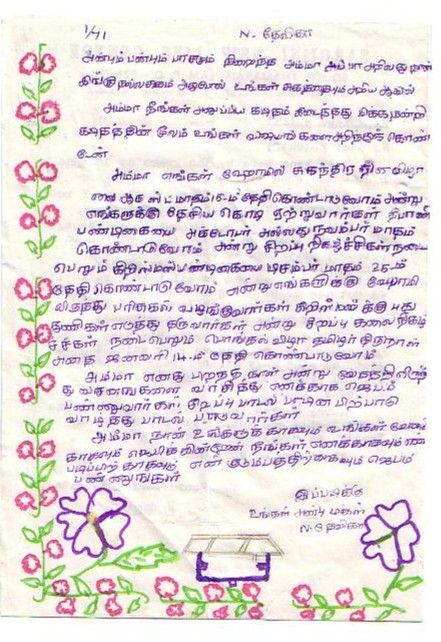 1/41 N. தேவிகா
அன்பும் பண்பும் பாசமும் நிறைந்த அம்மா அப்பா அறிவது நான்
இங்கு நல்ல சுகம் அதுபோல் உங்கள் சுகத்தையும் அறிய ஆவல்
அம்மா நீங்கள் அனுப்பிய கடிதம் கிடைத்தது மிக்க நன்றி
கடிதத்தின் மேலம் உங்கள் விஷயங்களை அறிந்துக் கொண்
டேன்
அம்மா எங்கள் ஹோமில் சுகந்திர தின விழா
வை ஆகஸ்ட் மாதம் 15-ம் தேதி கொண்டாடுவோம் அன்று
எங்களுக்கு தேசிய கொடி ஏற்றுவார்கள் தீபாளி
பண்டிகையை அக்டோபர் அல்லது நவம்பர் மாதம்
கொண்டாடுவோம் அன்று சிறப்பு நிகழ்ச்சிகள் நடை
பெறும் கிறிஸ்மஸ் பண்டிகையை டிசம்பர் மாதம் 25-ம்
தேதி கொண்டாடுவோம் அன்று எங்களுக்கு ஹோமில்
விருந்து பரிசுகள் வழங்குவார்கள் கிறிஸ்மஸ்க்கு புது
துணிகள் எடுத்து தருவார்கள் அன்று சிறப்பு கலை நிகழ்
ச்சிகள் நடைபெறும் பொங்கல் விழா தமிழர் திருநாள்
அதை ஜனவரி 14-ம் தேதி கொண்டாடுவோம்
அம்மா எனது பிறந்த நாள் அன்று வேதத்திலிருந்
து வசனங்களை வாசித்து எனக்காக ஜெபம்
பண்ணுவார்கள் சிறப்பு பாடல் பாடின பிற்பாடு
வாழ்த்து பாடல் பாடுவார்கள்
அம்மா நான் உங்களுக்காகவும் உங்கள்
காகவும் ஜெபிக்கின்றேன் நீங்கள் எனக்காகவும் என்
படிப்பிற்காகவும் என் குடும்பத்திற்காகவும் ஜெபம்
பண்ணுங்கள்
இப்படிக்கு
உங்கள் அன்பு மகள்
N. தேவிகா